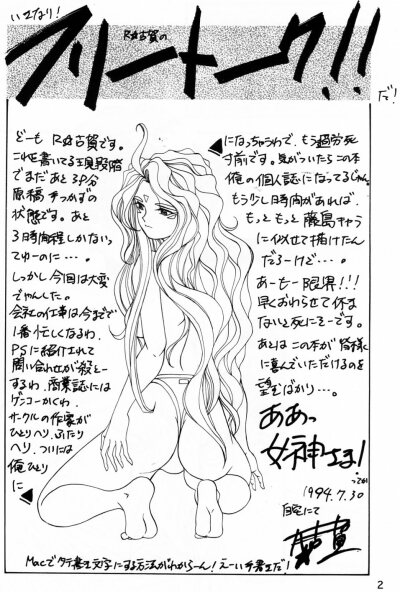 いきなり!
R女古賀の
フリートーク!!
だ!
どーも R女古賀です。
これを書いてる現段階
でまだあと38分
原稿 手つかずの
状態です。あと
3時間程しかないっ
てゆーのに…。
しっかし今回は大変
でやんした。
会社の仕事は今までで
1番忙しくなるわ、
PSに紹介されて
問い合わせが殺とー
するわ、商業誌には
ゲンコーかくわ、
サークルの作家が
ひとりヘリ、ふたり
ヘリ、ついには
俺ひとり
に
になっちゃうわで、もう過労死
寸前です。気がついたらこの本
俺の個人誌になってるじゃん。
もう少し時間があれば、
もっともっと藤島キャラ
に似せて描けたん
だろーけど…。
あーもー限界!!!
早くおわらせて休ま
ないと死にそーです。
あとはこの本が皆様
に喜んでいただけるのを
望むばかり…。
ああっ
女神さま!
ってか
1994.7.30
自宅にて
古賀
Macでタテ書き文字にする方法がわからーん!えーい手書きだ!
2